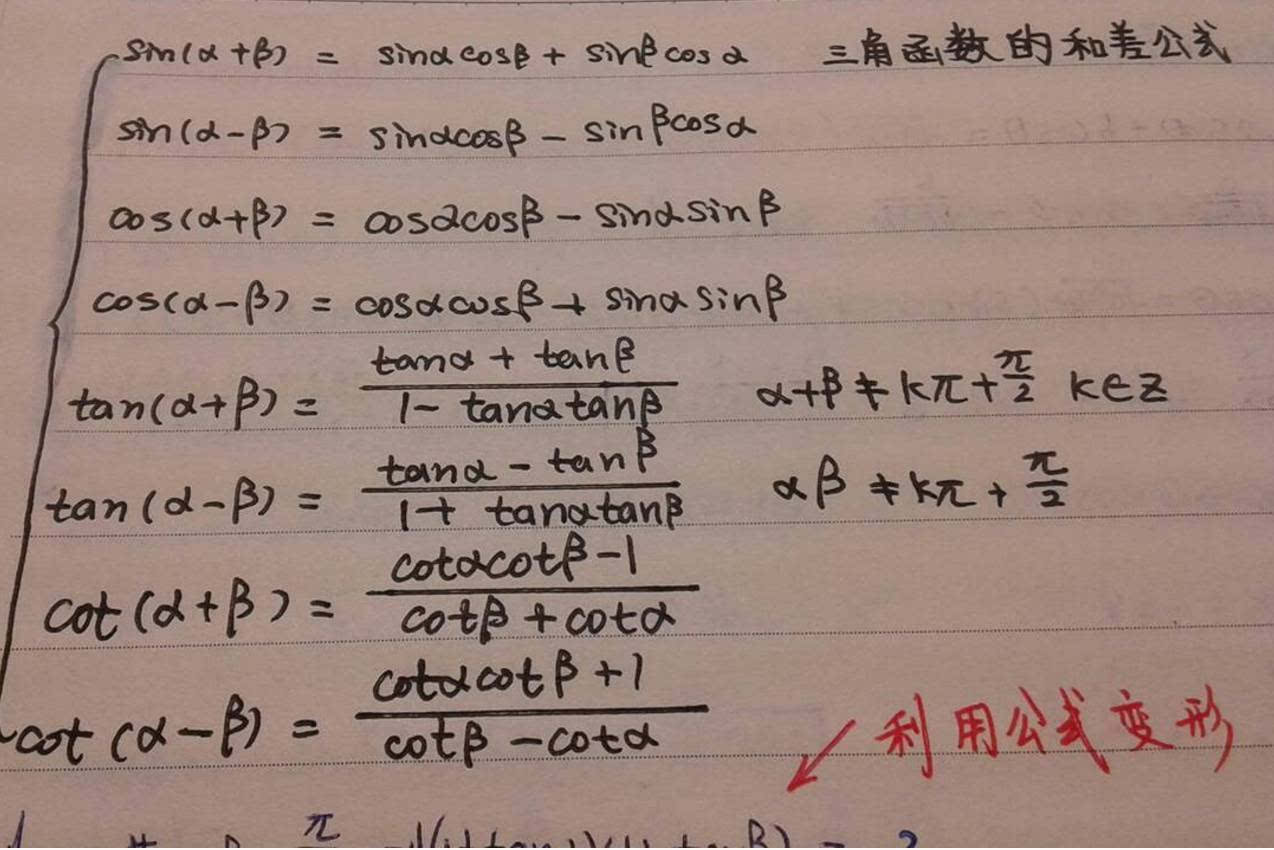 sin(α+β) = sinαcosβ + sinβcosα 三角函数的和差公式
sin(α-β) = sinαcosβ - sinβcosα
cos(α+β) = cosαcosβ - sinαsinβ
cos(α-β) = cosαcosβ + sinαsinβ
tan(α+β) = (tanα + tanβ)/(1 - tanαtanβ) α+β ≠ kπ + π/2 k∈Z
tan(α-β) = (tanα - tanβ)/(1 + tanαtanβ) αβ ≠ kπ + π/2
cot(α+β) = (cotαcotβ - 1)/(cotβ + cotα)
cot(α-β) = (cotαcotβ + 1)/(cotβ - cotα)
利用公式变形